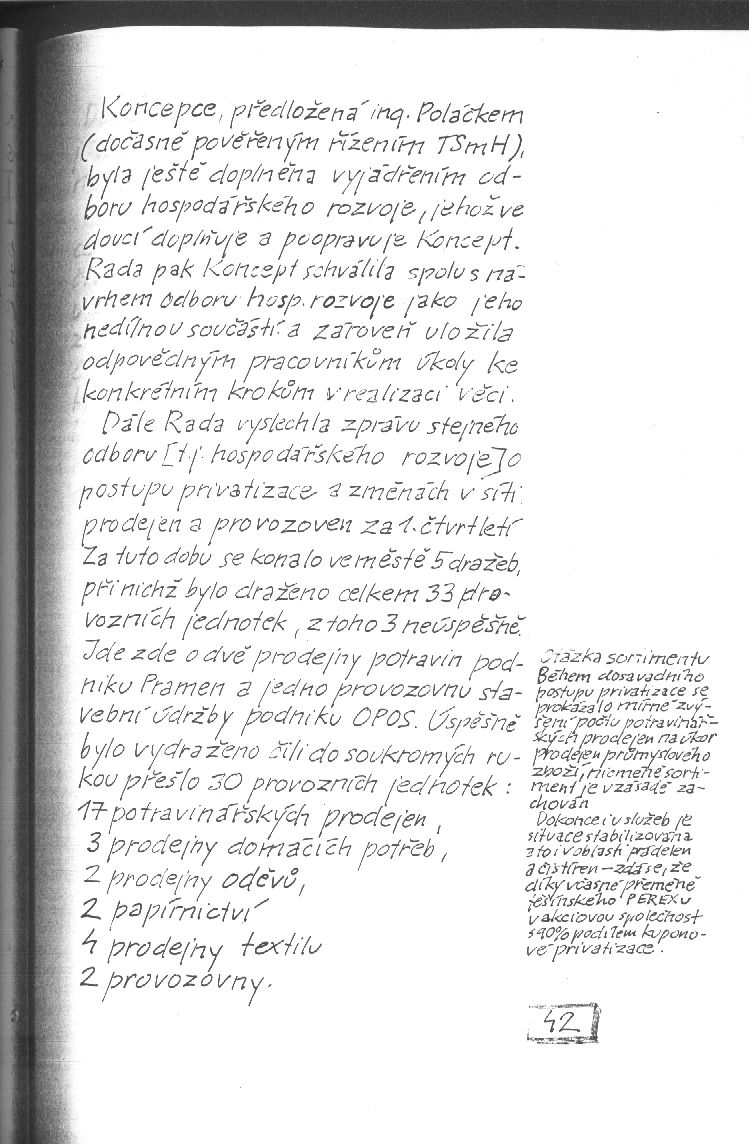 Koncepce, předložená ing. Poláčkem
(dočasně pověřeným řízením TSmH),
byla ještě doplněna vyjádřením od-
boru hospodářského rozvoje, jehož ve
doucí doplňuje a poopravuje koncept.
Rada pak Koncept schválila spolu s ná-
vrhem odboru hosp. rozvoje jako jeho
nedílnou součástí a zároveň uložila
odpovědným pracovníkům úkoly ke
konkrétním krokům v realizaci věci.
Dále Rada vyslechla zprávu stejného
odboru [tj. hospodářského rozvoje] o
postupu privatizace a změnách v síti
prodejen a provozoven za 1. čtvrtletí
Za tuto dobu se konalo ve městě 5 dražeb,
při nichž bylo draženo celkem 33 pro-
vozních jednotek, z toho 3 neúspěšně.
Jde zde o dvě prodejny potravin pod-
niku Pramen a jedno provozovnu sta-
vební údržby podniku OPOS. Úspěšně
bylo vydraženo čili do soukromých ru-
kou přešlo 30 provozních jednotek :
17 potravinářských prodejen,
3 prodejny domácích potřeb,
2 prodejny oděvů,
2 papírnictví
4 prodejny textilu
2 provozovny.
Otázka sortimentu
Během dosavadního
postupu privatizace se
prokázalo mírné zvý-
šení počtu potravinář-
ských prodejen na úkor
prodejen průmyslového
zboží, nicméně sorti-
ment je v zásadě za-
chován
Dokonce i u služeb je
situace stabilizována
a to i v oblasti prádelen
a čistíren – zdá se, že
díky včasné přeměně
ješínského PEREXu
v akciovou společnost
s 90% podílem kupono-
vé privatizace.
42